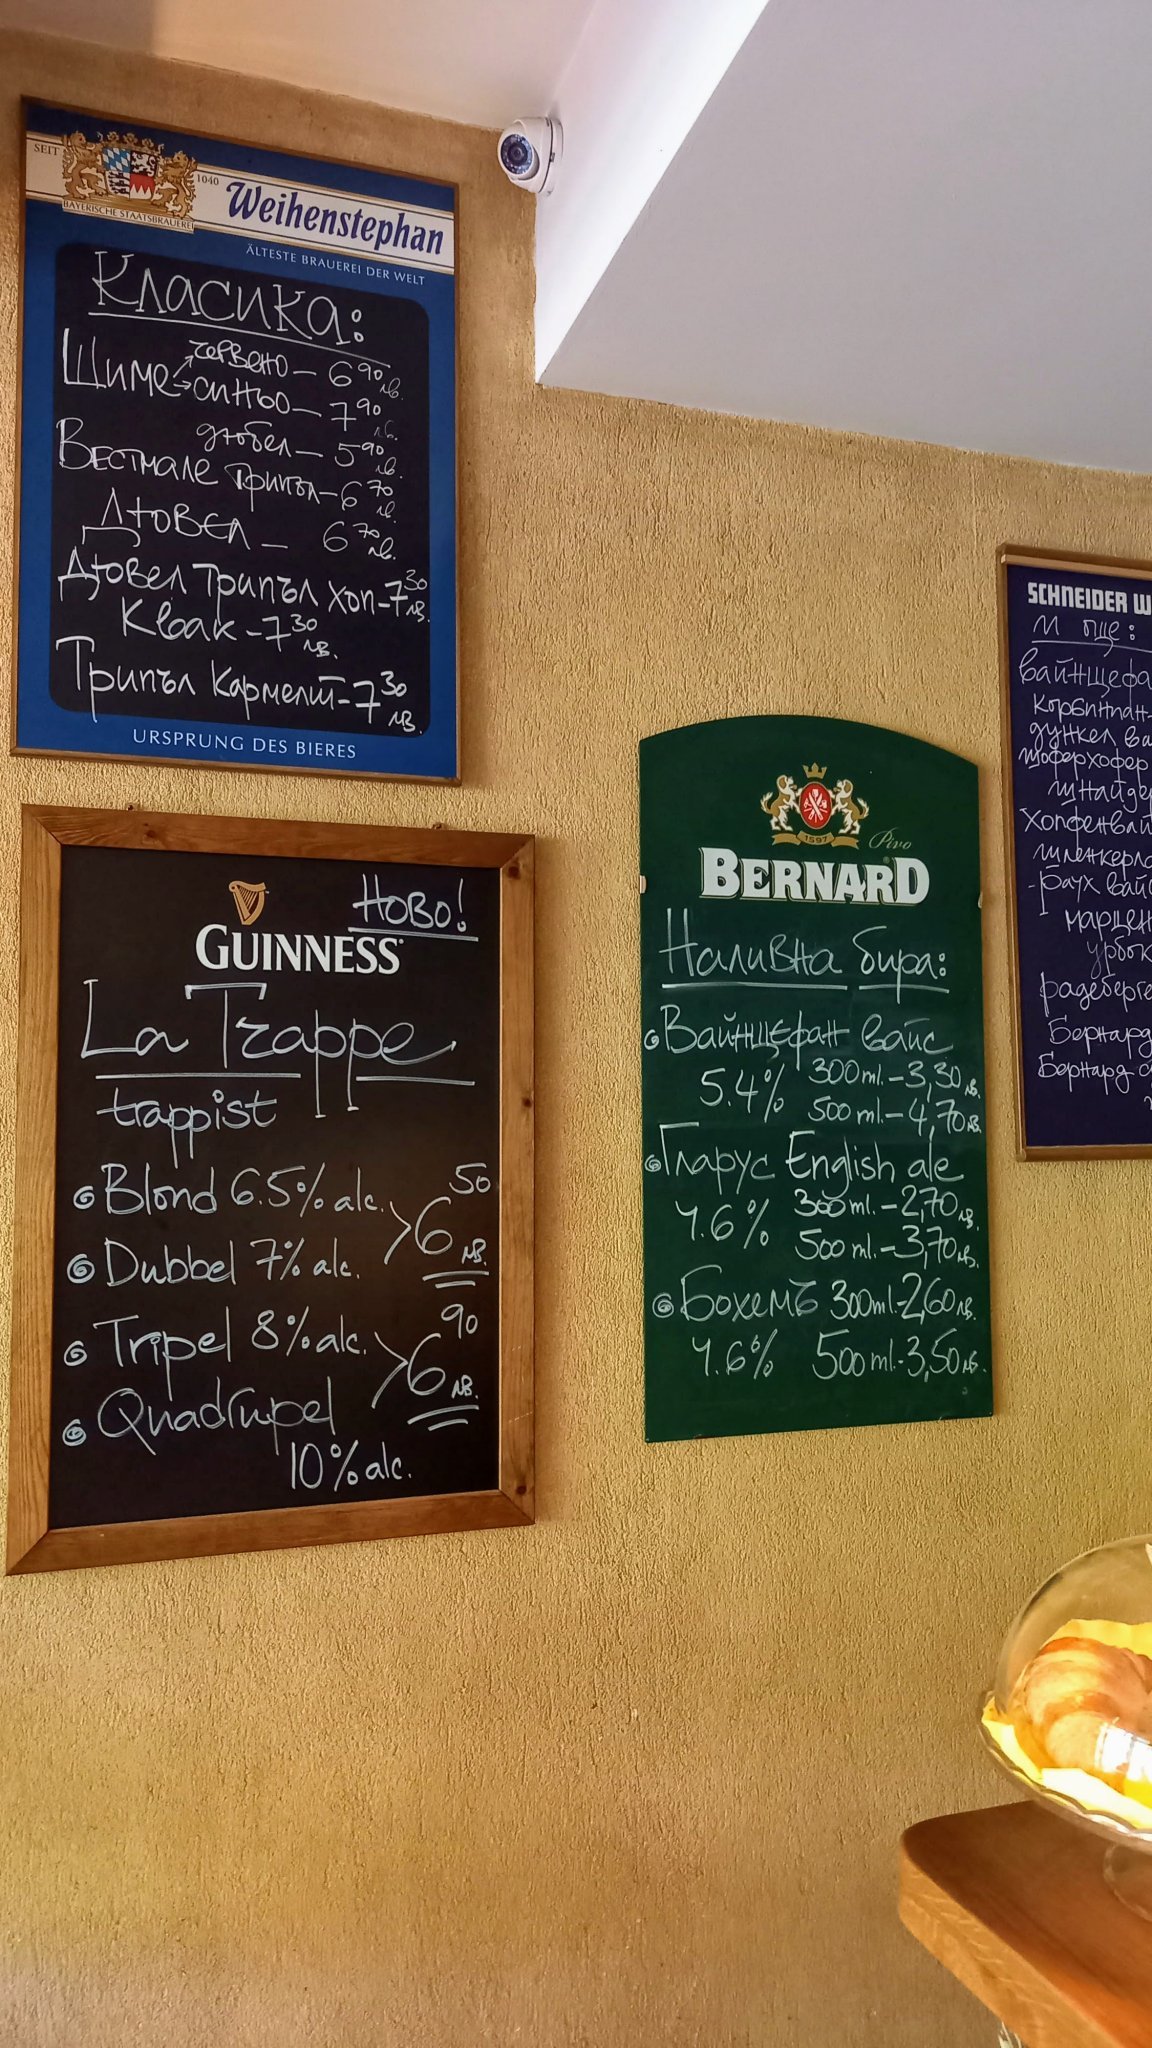 SEIT 1040
BAYERISCHE STAATSBRAUEREI
Weihenstephan
ÄLTESTE BRAUEREI DER WELT
Класика:
Шиме → червено – 6 90 лв.
→ синьо – 7 90 лв.
Вестмале дюбел – 5 90 лв.
трипъл – 6 70 лв.
Дювел – 6 70 лв.
Дювел трипъл хоп – 7 30 лв.
Квак – 7 30 лв.
Трипъл Кармелит – 7 30 лв.
URSPRUNG DES BIERES
Ново!
GUINNESS
La Trappe
trappist
Blond 6.5% alc.
Dubbel 7% alc.
> 6 50 лв.
Tripel 8% alc.
Quadrupel
10% alc.
> 6 90 лв.
1597
Pivo
BERNARD
Наливна бира:
Вайнщефан вайс
5.4% 300 ml. – 3,30 лв.
500 ml. – 4,70 лв.
Гларус English ale
4.6% 300 ml. – 2,70 лв.
500 ml. – 3,70 лв.
Бохемъ 300 ml. – 2,60 лв.
4.6% 500 ml. – 3,50 лв.
SCHNEIDER W
и още:
вайнщефа
корбиниан-
дункел ва
шоферхофер
шнайдер
хопфенвай
шленкерла
- раух вайс
марцен
урбок
радеберге
Бернард
Бернард